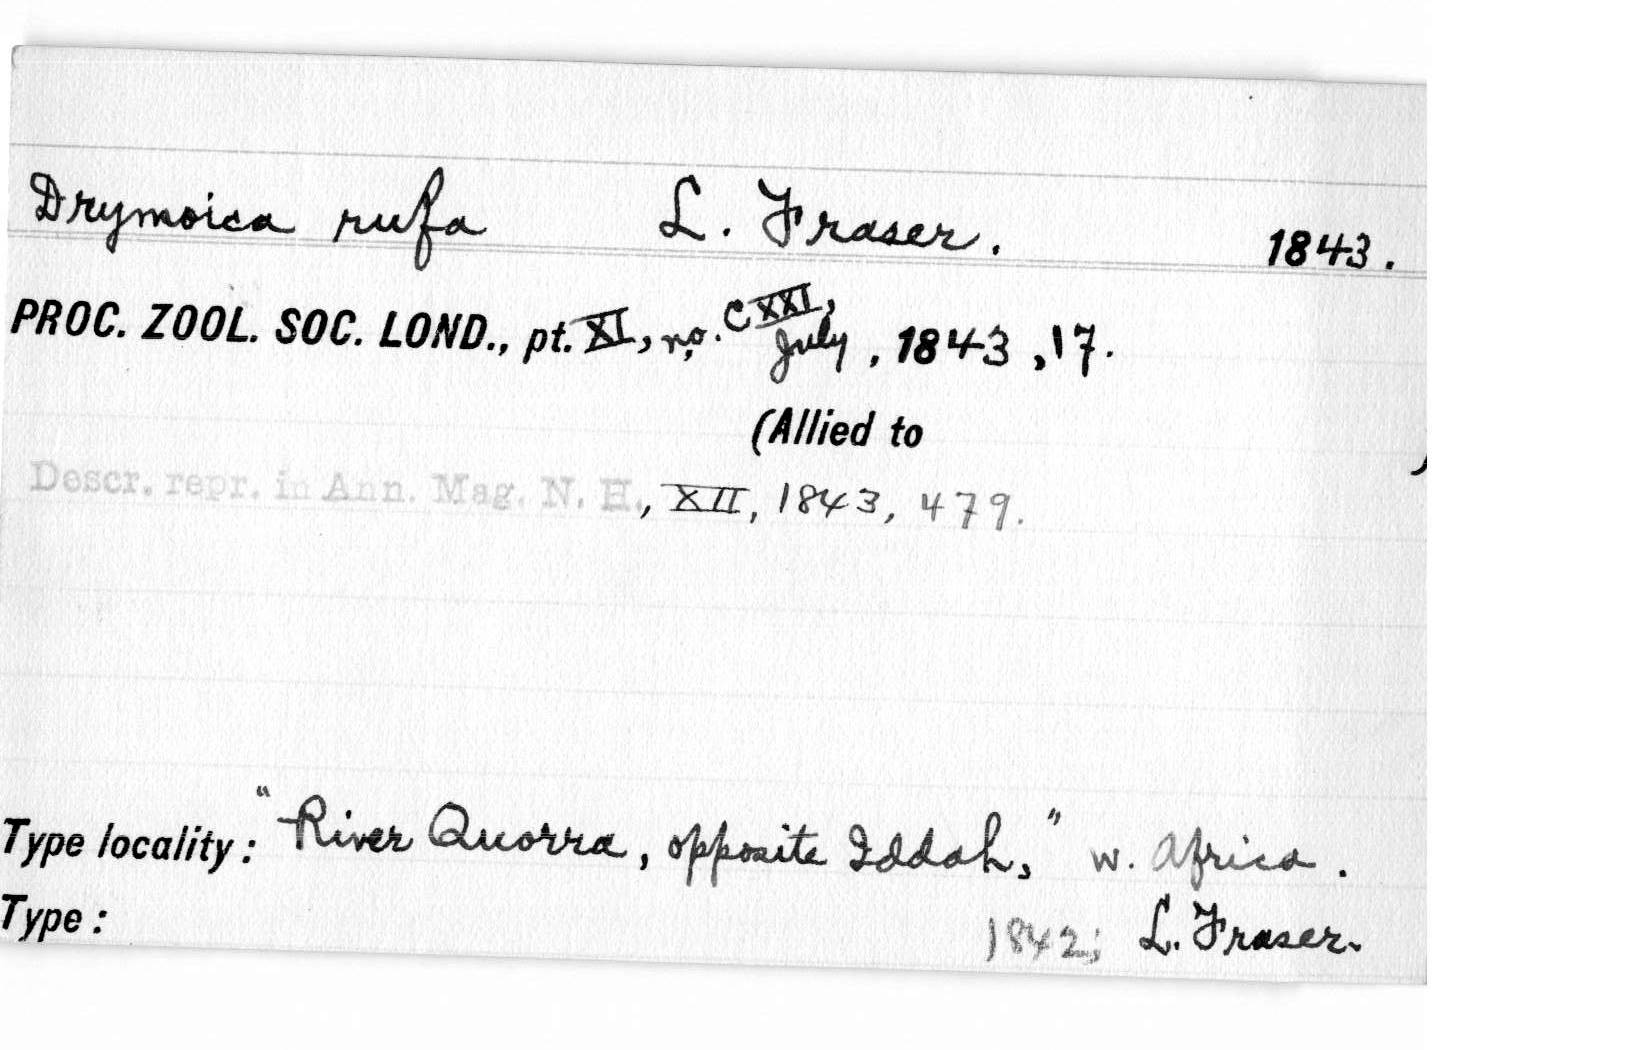 Drymoica rufa L. Fraser. 1843.
PROC. ZOOL. SOC. LOND., pt. XI, no. CXXI, July, 1843, 17.
(Allied to )
Descr. repr. in Ann. Mag. N. H., XII, 1843, 479.
Type locality: "River Quorra, opposite Iddah," W. Africa.
Type: 1842; L. Fraser.